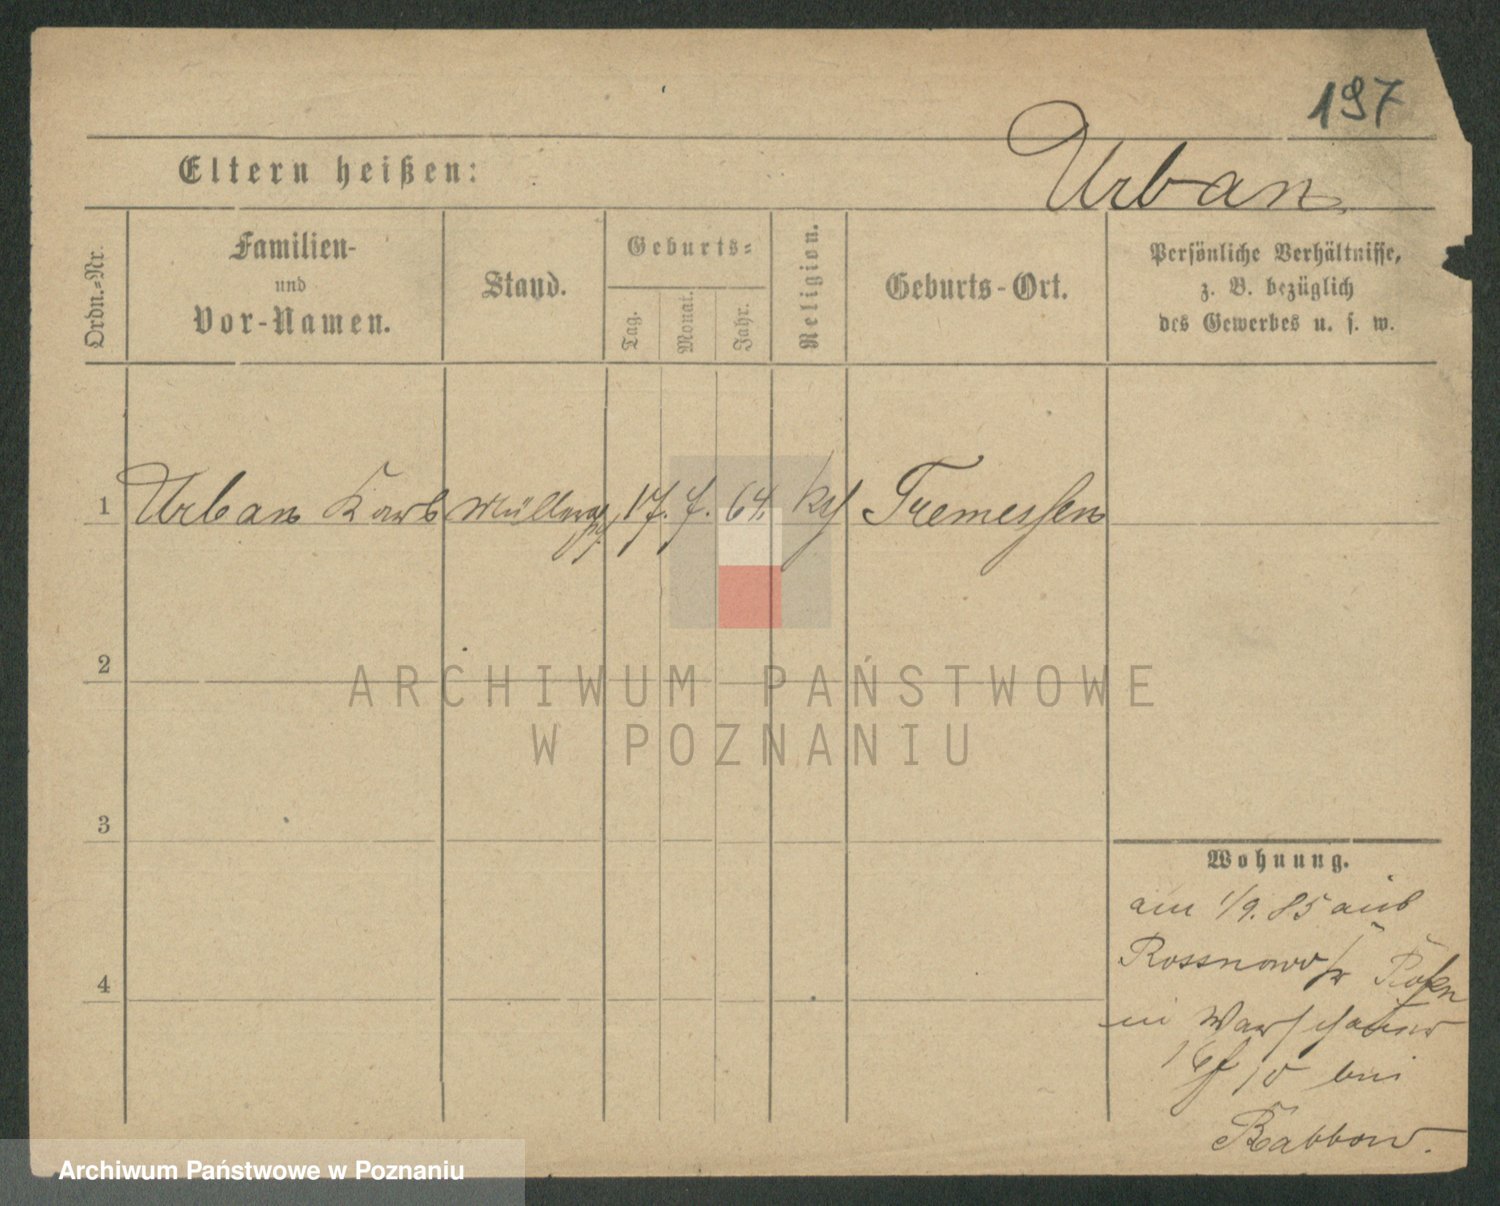 197
Urban
Eltern heißen:
Ordn.-Nr.
Familien-
und
Vor-Namen.
Stand.
Geburts-
Tag.
Monat.
Jahr.
Religion.
Geburts-Ort.
Persönliche Verhältnisse,
z. B. bezüglich
des Gewerbes u. s. w.
1 Urban 17. 7. 64. Tremessen
2
3
4
Wohnung.
am 1/9. 85 aus
Rossnowo
in Warschauer
10 bei
Babbow.
ARCHIWUM PAŃSTWOWE
W POZNANIU
Archiwum Państwowe w Poznaniu